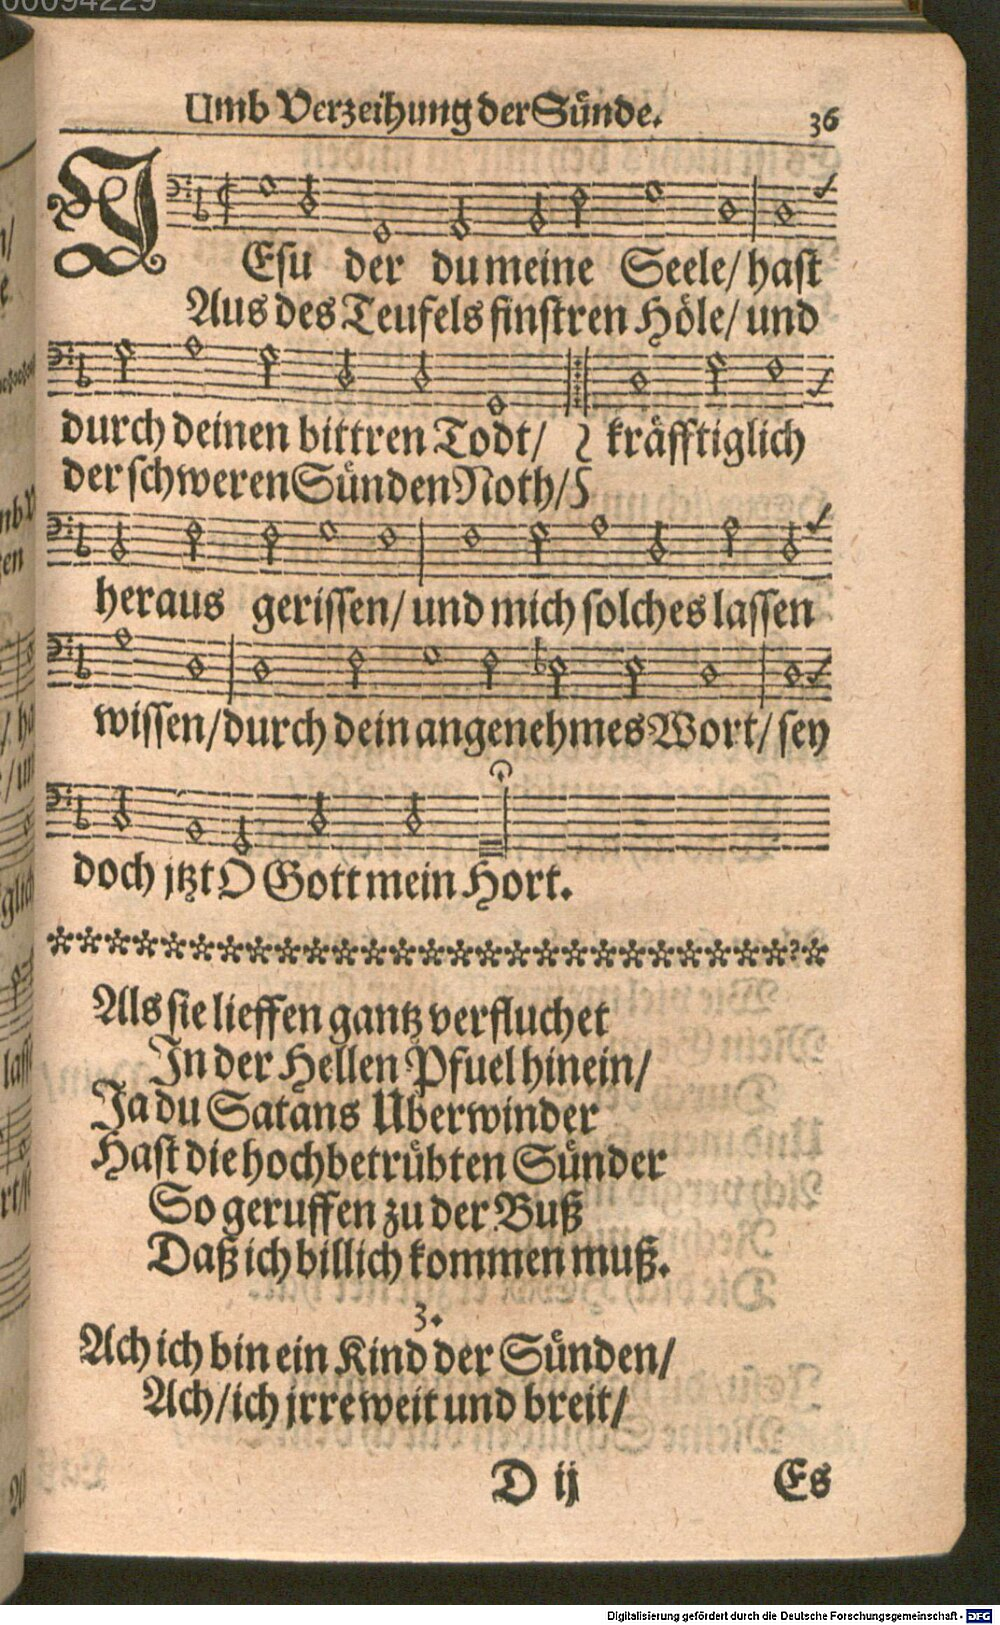 00094229
Umb Verzeihung der Sünde.
36
JEsu der du meine Seele/ hast
Aus des Teufels finstren Höle/ und
durch deinen bittren Todt/ kräfftiglich
der schweren Sünden Noth/
heraus gerissen/ und mich solches lassen
wissen/ durch dein angenehmes Wort/ sey
doch jtzt O Gott mein Hort.
Als sie lieffen gantz verfluchet
In der Hellen Pfuel hinein/
Ja du Satans Überwinder
Hast die hochbetrübten Sünder
So geruffen zu der Buß
Daß ich billich kommen muß.
3.
Ach ich bin ein Kind der Sünden/
Ach/ ich jrre weit und breit/
D ij
Es
Digitalisierung gefördert durch die Deutsche Forschungsgemeinschaft - DFG